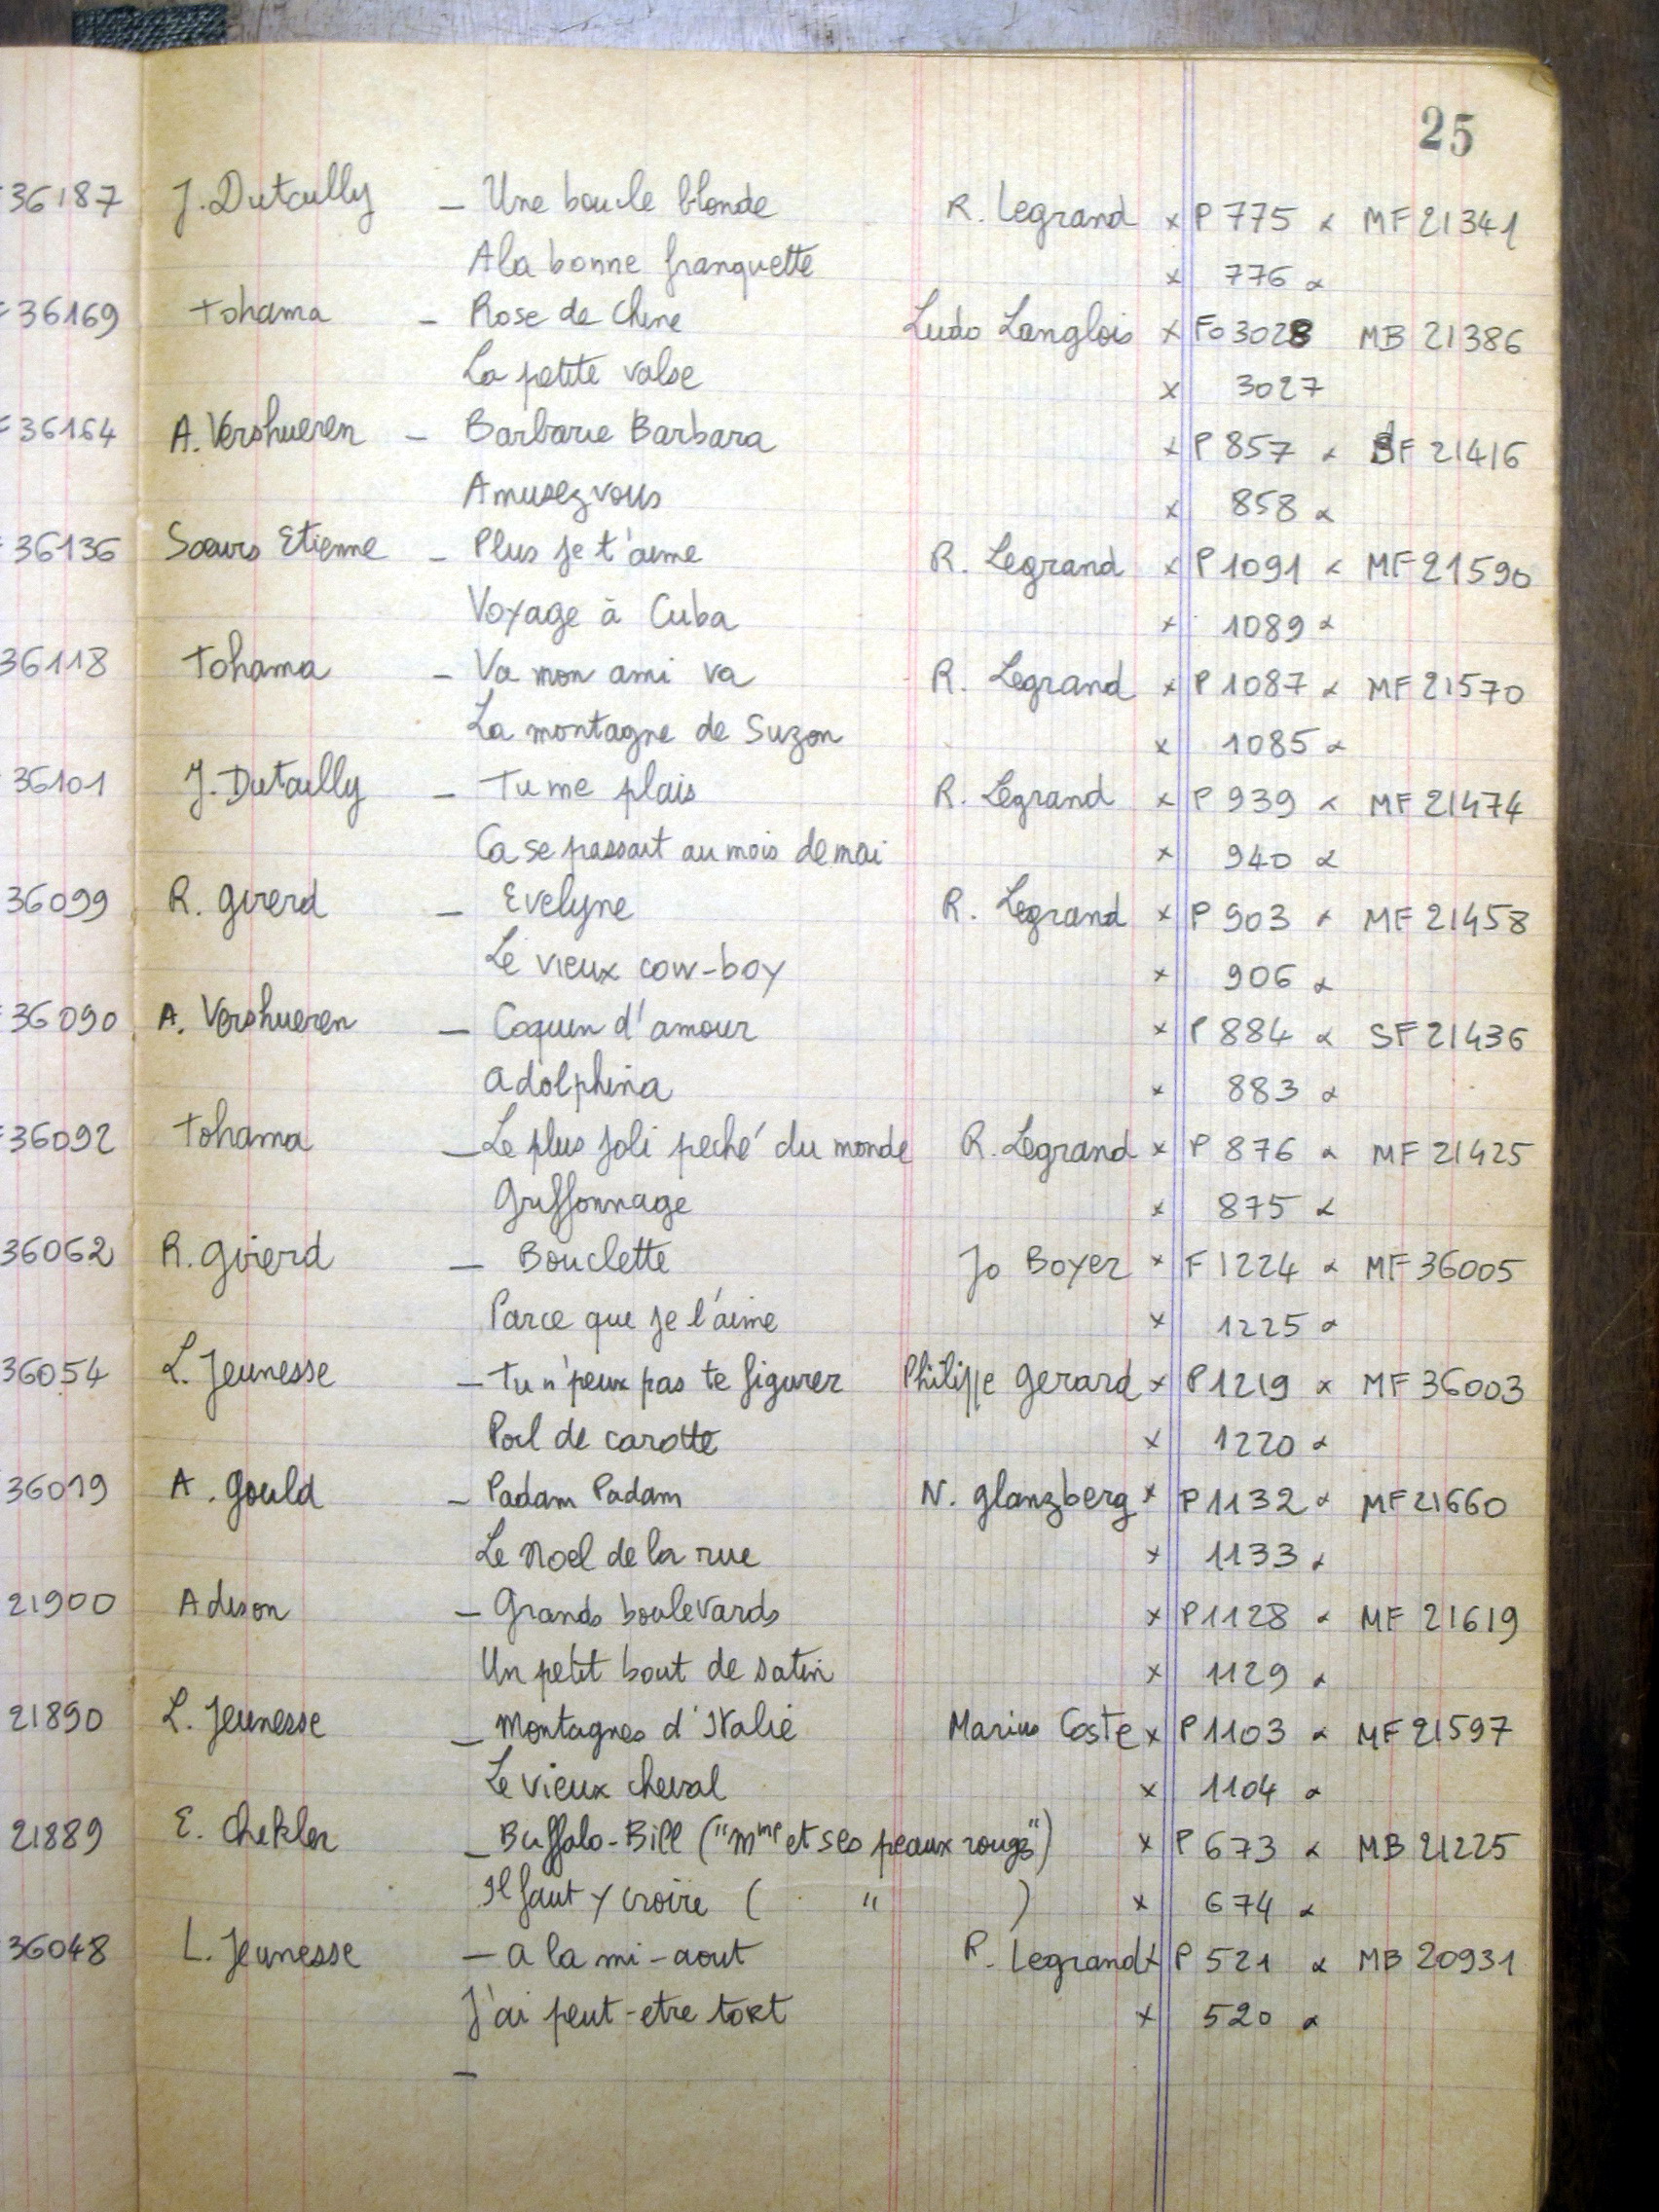 25
36187 J. Dutailly — Une boucle blonde R. Legrand x P 775 α MF 21341
A la bonne franquette x 776 α
36169 Tohama — Rose de Chine Ludo Langlois x Fo 3028 MB 21386
La petite valse x 3027
36164 A. Vershueren — Barbarie Barbara x P 857 α SF 21416
Amusez vous x 858 α
36136 Soeurs Etienne — Plus je t'aime R. Legrand x P 1091 α MF 21590
Voyage à Cuba x 1089 α
36118 Tohama — Va mon ami va R. Legrand x P 1087 α MF 21570
La montagne de Suzon x 1085 α
36101 J. Dutailly — Tu me plais R. Legrand x P 939 α MF 21474
Ca se passait au mois de mai x 940 α
36099 R. Girerd — Evelyne R. Legrand x P 903 α MF 21458
Le vieux cow-boy x 906 α
36090 A. Vershueren — Coquin d'amour x P 884 α SF 21436
Adolphina x 883 α
36092 Tohama — Le plus joli peché du monde R. Legrand x P 876 α MF 21425
Griffonnage x 875 α
36062 R. Girerd — Bouclette Jo Boyer x F 1224 α MF 36005
Parce que je l'aime x 1225 α
36054 L. Jeunesse — Tu n'peux pas te figurer Philippe Gerard x P 1219 α MF 36003
Poil de carotte x 1220 α
36019 A. Gould — Padam Padam N. Glanzberg x P 1132 α MF 21660
Le Noel de la rue x 1133 α
21900 Adison — Grands boulevards x P 1128 α MF 21619
Un petit bout de satin x 1129 α
21890 L. Jeunesse — Montagnes d'Italie Marius Coste x P 1103 α MF 21597
Le vieux cheval x 1104 α
21889 E. Chekler — Buffalo-Bill ("Mme et ses peaux rouges") x P 673 α MB 21225
Il faut y croire ( " ) x 674 α
36048 L. Jeunesse — A la mi-aout R. Legrand x P 521 α MB 20931
J'ai peut-etre tort x 520 α
—